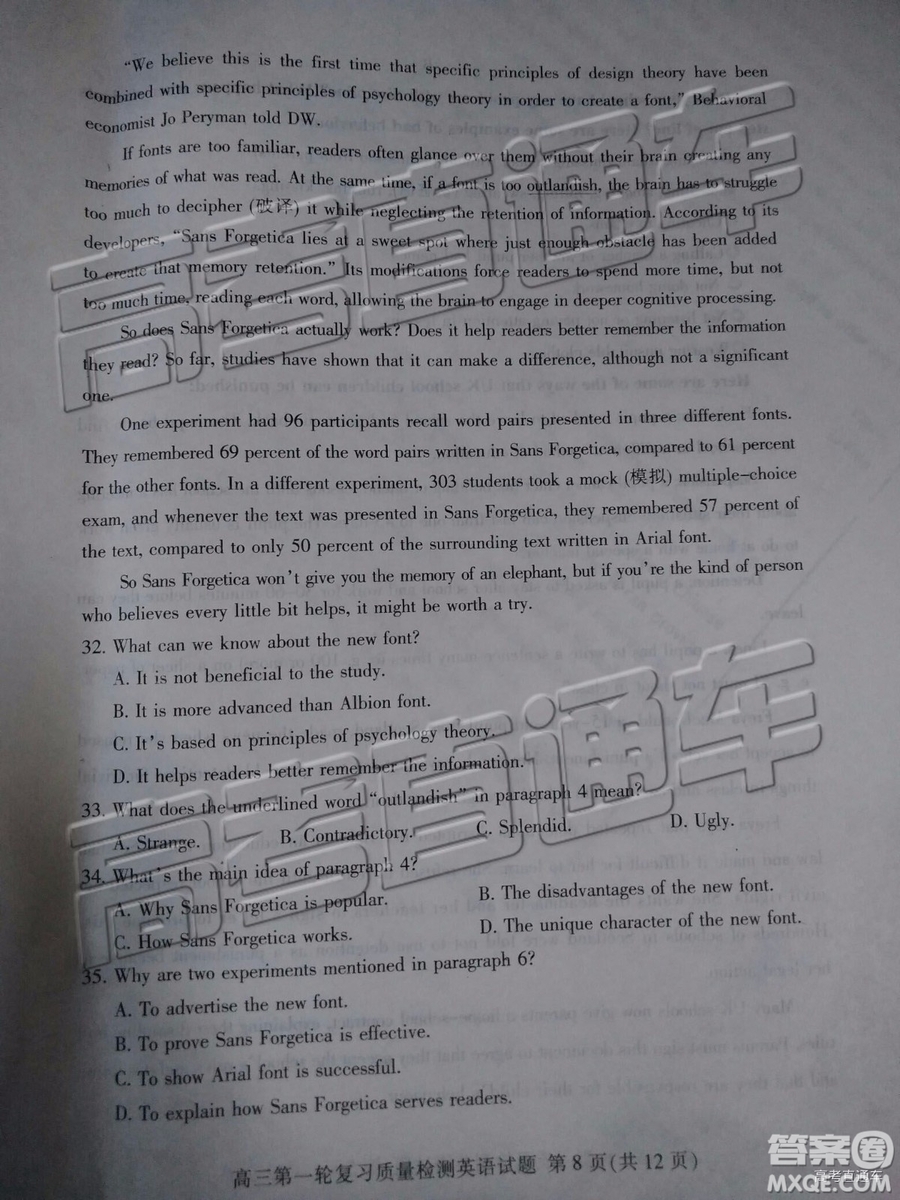 "We believe this is the first time that specific principles of design theory have been
combined with specific principles of psychology theory in order to create a font," Behavioral
economist Jo Peryman told DW.
If fonts are too familiar, readers often glance over them without their brain creating any
memories of what was read. At the same time, if a font is too outlandish, the brain has to struggle
too much to decipher (破译) it while neglecting the retention of information. According to its
developers, "Sans Forgetica lies at a sweet spot where just enough obstacle has been added
to create that memory retention." Its modifications force readers to spend more time, but not
too much time, reading each word, allowing the brain to engage in deeper cognitive processing.
So does Sans Forgetica actually work? Does it help readers better remember the information
they read? So far, studies have shown that it can make a difference, although not a significant
one.
One experiment had 96 participants recall word pairs presented in three different fonts.
They remembered 69 percent of the word pairs written in Sans Forgetica, compared to 61 percent
for the other fonts. In a different experiment, 303 students took a mock (模拟) multiple-choice
exam, and whenever the text was presented in Sans Forgetica, they remembered 57 percent of
the text, compared to only 50 percent of the surrounding text written in Arial font.
So Sans Forgetica won't give you the memory of an elephant, but if you're the kind of person
who believes every little bit helps, it might be worth a try.
32. What can we know about the new font?
A. It is not beneficial to the study.
B. It is more advanced than Albion font.
C. It's based on principles of psychology theory.
D. It helps readers better remember the information.
33. What does the underlined word "outlandish" in paragraph 4 mean?
A. Strange. B. Contradictory. C. Splendid. D. Ugly.
34. What's the main idea of paragraph 4?
A. Why Sans Forgetica is popular. B. The disadvantages of the new font.
C. How Sans Forgetica works. D. The unique character of the new font.
35. Why are two experiments mentioned in paragraph 6?
A. To advertise the new font.
B. To prove Sans Forgetica is effective.
C. To show Arial font is successful.
D. To explain how Sans Forgetica serves readers.
高三第一轮复习质量检测英语试题 第 8 页(共 12 页)
高考直通车
高考直通车
答案圈
MXQE.COM
高考直通车